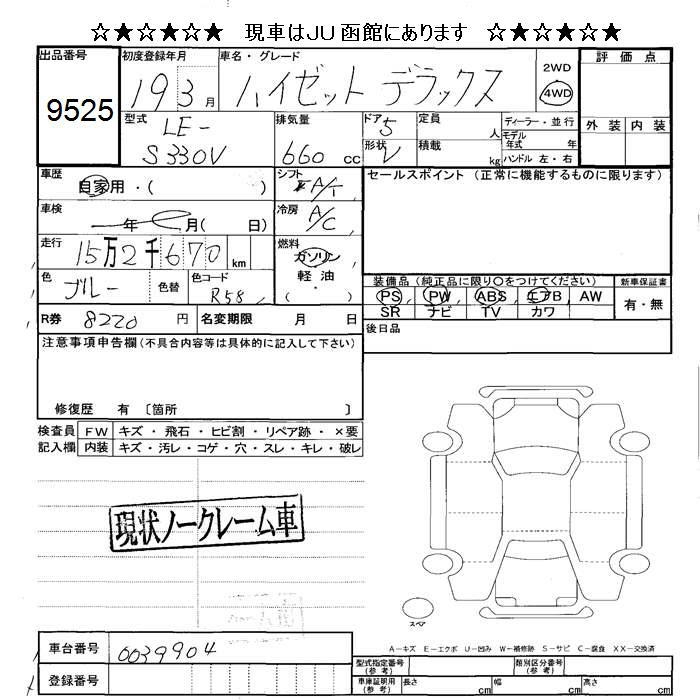 ☆★☆★☆★ 現車はJU函館にあります ☆★☆★☆★
出品番号 9525
初度登録年月 19 3 月
車名・グレード ハイゼット デラックス
2WD
4WD
評価点
外装 内装
型式 LE-
S330V
排気量 660 cc
ドア 5
形状 V
定員 人
積載 kg
ディーラー・並行
モデル年式 年
ハンドル 左・右
車歴 自家用・( )
シフト A/T
セールスポイント (正常に機能するものに限ります)
車検 年 月( 日)
冷房 A/C
走行 15万2千670 km
燃料 ガソリン
軽油
・( )
色 ブルー 色替 色コード R58
装備品 (純正品に限り○をつけてください)
新車保証書
PS PW ABS エアB AW
SR ナビ TV カワ
有・無
R券 8220 円 名変期限 月 日
後日品
注意事項申告欄(不具合内容等は具体的に記入して下さい)
修復歴 有 〔箇所 〕
検査員 FW キズ・飛石・ヒビ割・リペア跡・×要
記入欄 内装 キズ・汚レ・コゲ・穴・スレ・キレ・破レ
現状ノークレーム車
スペア
A-キズ E-エクボ U-凹み W-補修跡 S-サビ C-腐食 XX-交換済
車台番号 0039904
登録番号
型式指定番号(参考) 類別区分番号(参考)
車庫証明用(参考) 長さ cm 幅 cm 高さ cm